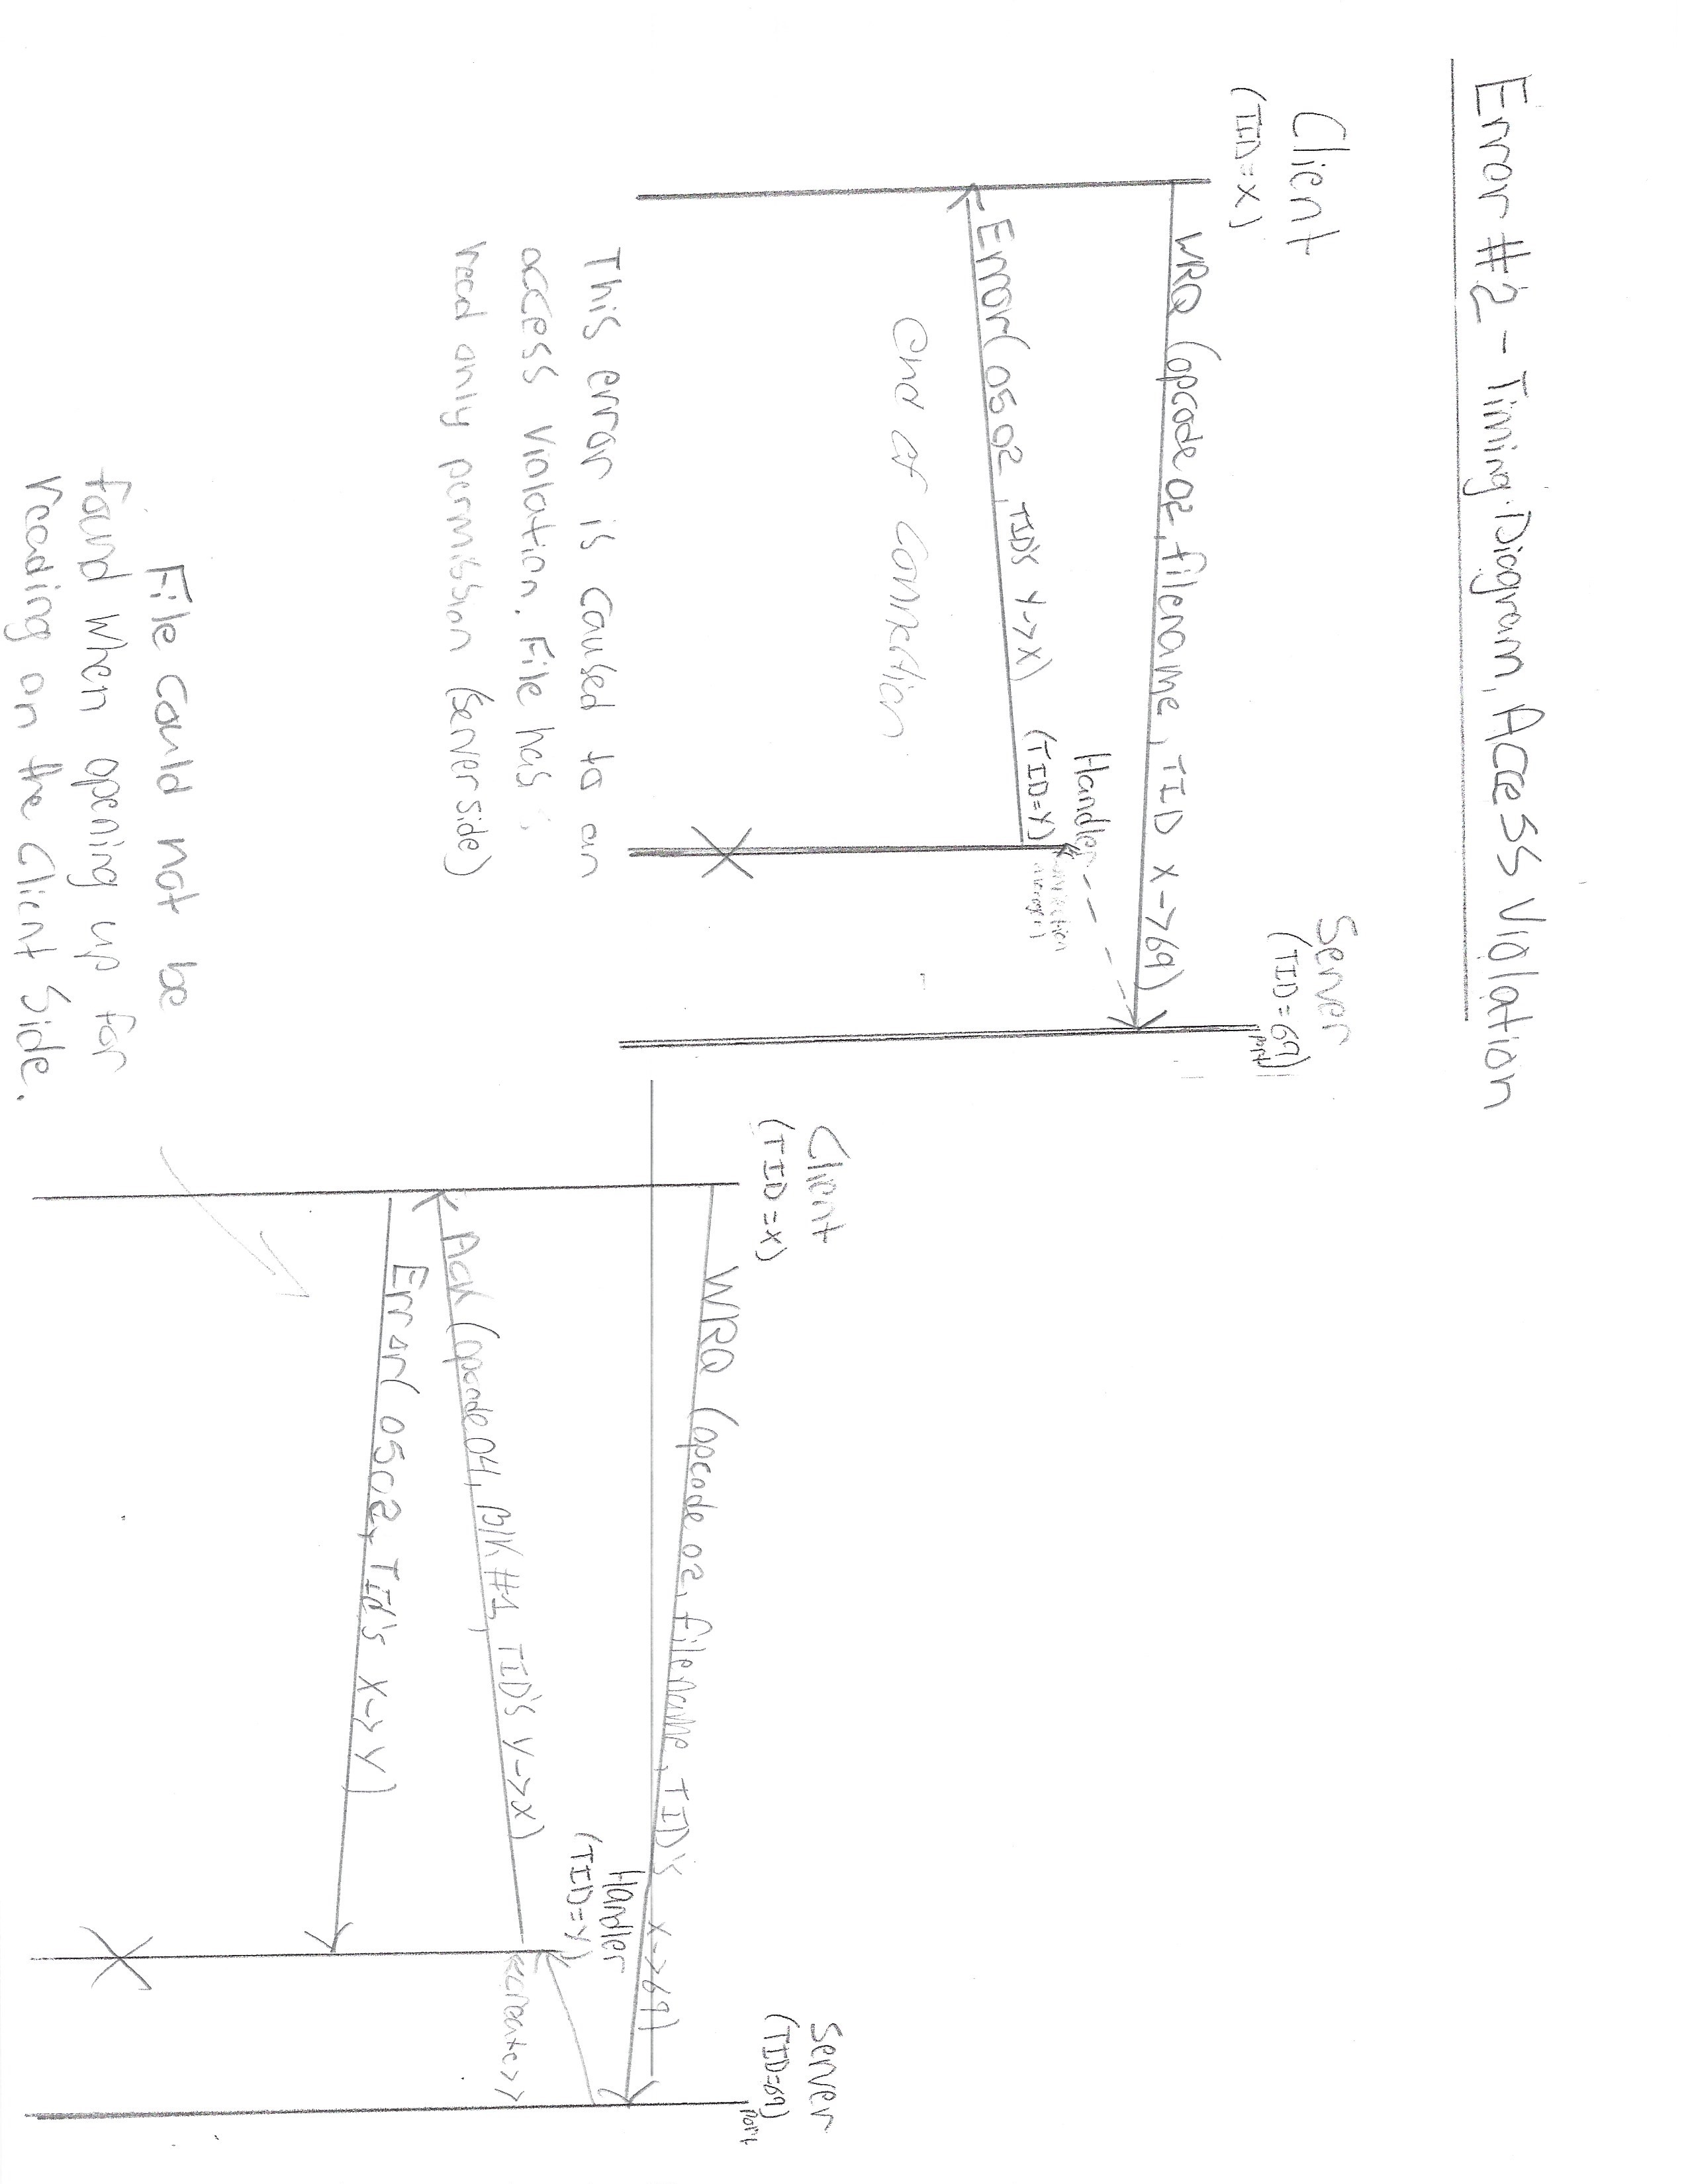 Error #2 - Timing Diagram, Access Violation
Client
(TID=X)
Server
(TID=69)
port
WRQ (opcode 02, filename, TID X->69)
Handler
(TID=Y)
Connection
Error( 05 02, TID's Y->X)
end of connection
This error is caused to an
access violation. File has
read only permission (Server side)
Client
(TID=X)
Server
(TID=69)
port
WRQ (opcode 02, filename, TID's X->69)
Handler
(TID=Y)
<<create>>
Ack (opcode 04, Blk #1, TID's Y->X)
Error( 0502, TId's X->Y)
File could not be
found when opening up for
reading on the Client Side.